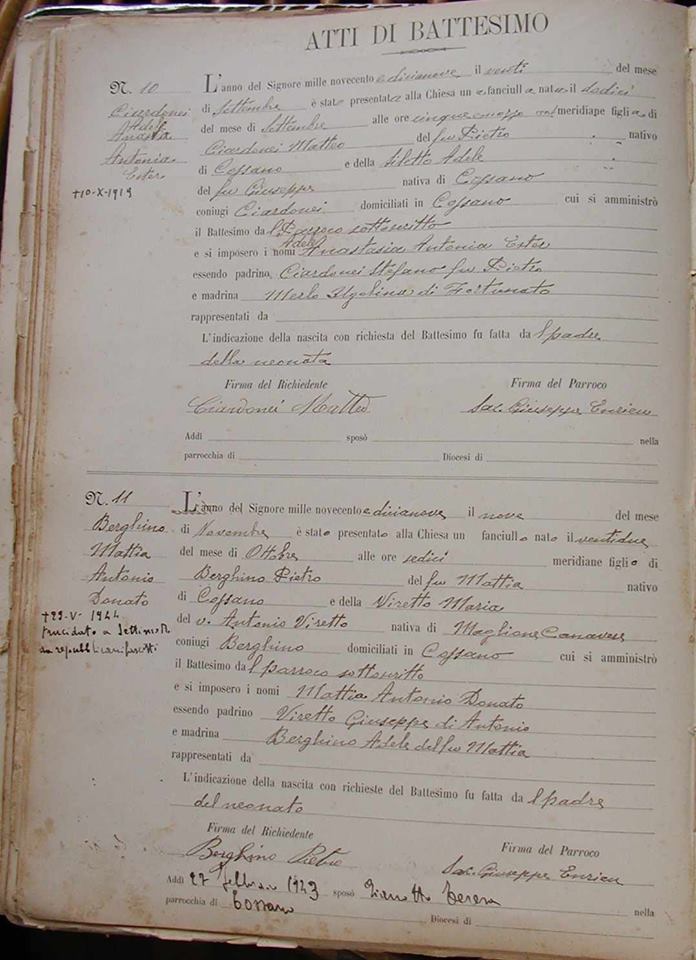 ATTI DI BATTESIMO
N. 10
Ciardonei
Adele
Anastia
Antonia
Ester
+10-X-1919
L'anno del Signore mille novecento e dicianove il venti del mese
di Settembre è stata presentata alla Chiesa un a fanciulla nata il sedici
del mese di Settembre alle ore cinque meridiane figlia di
Ciardonei Matteo del fu Pietro nativo
di Cossano e della Adele
del fu Giuseppe nativa di Cossano
coniugi Ciardonei domiciliati in Cossano cui si amministrò
il Battesimo da l Parroco sottoscritto
Adele
e si imposero i nomi Anastasia Antonia Ester
essendo padrino Ciardonei Stefano fu Pietro
e madrina Merlo Ugolina di Fortunato
rappresentati da
L'indicazione della nascita con richiesta del Battesimo fu fatta da l padre
della neonata
Firma del Richiedente Firma del Parroco
Ciardonei Matteo Sac. Giuseppe Enrieu
Addì sposò nella
parrocchia di Diocesi di
N. 11
Berghino
Mattia
Antonio
Donato
+23-V-1944
trucidato a Settimo R.
da repubblicani fascisti
L'anno del Signore mille novecento e dicianove il nove del mese
di Novembre è stato presentato alla Chiesa un fanciullo nato il ventidue
del mese di Ottobre alle ore sedici meridiane figlio di
Berghino Pietro del fu Mattia nativo
di Cossano e della Viretto Maria
del v. Antonio Viretto nativa di Maglione Canavese
coniugi Berghino domiciliati in Cossano cui si amministrò
il Battesimo da l parroco sottoscritto
e si imposero i nomi Mattia Antonio Donato
essendo padrino Viretto Giuseppe di Antonio
e madrina Berghino Adele del fu Mattia
rappresentati da
L'indicazione della nascita con richieste del Battesimo fu fatta da l padre
del neonato
Firma del Richiedente Firma del Parroco
Berghino Pietro Sac. Giuseppe Enrieu
Addì 27 febbraio 1943 sposò Teresa nella
parrocchia di Cossano Diocesi di